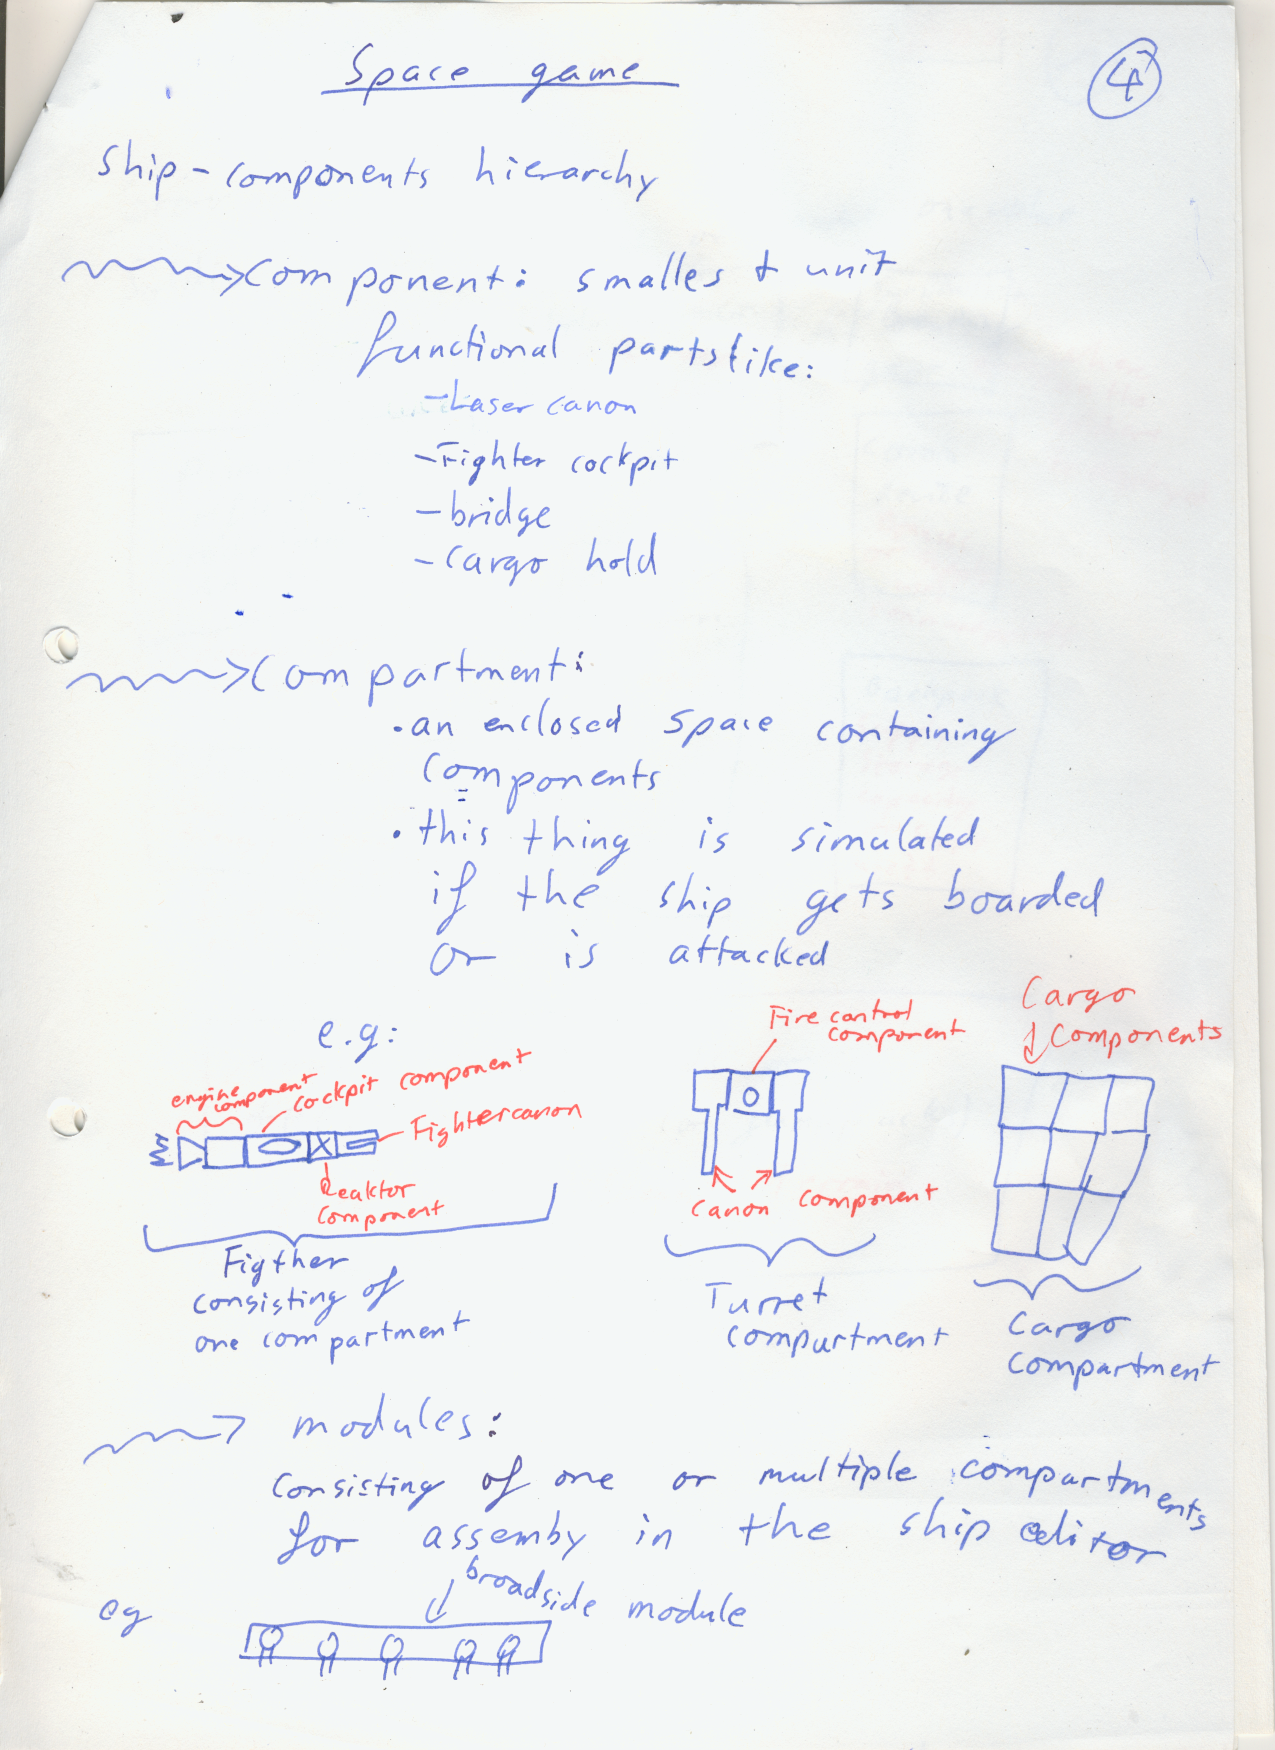 Space game
4
Ship - components hierarchy
Component: smallest unit
functional parts like:
- Laser canon
- Fighter cockpit
- bridge
- Cargo hold
Compartment:
• an enclosed space containing
components
• this thing is simulated
if the ship gets boarded
or is attacked
e.g:
engine
component
cockpit component
Fightercanon
Reaktor
component
Figther
consisting of
one compartment
Fire control
component
Canon component
Turret
compurtment
Cargo
Components
Cargo
compartment
modules:
Consisting of one or multiple compartments
for assemby in the ship editor
eg
broadside module